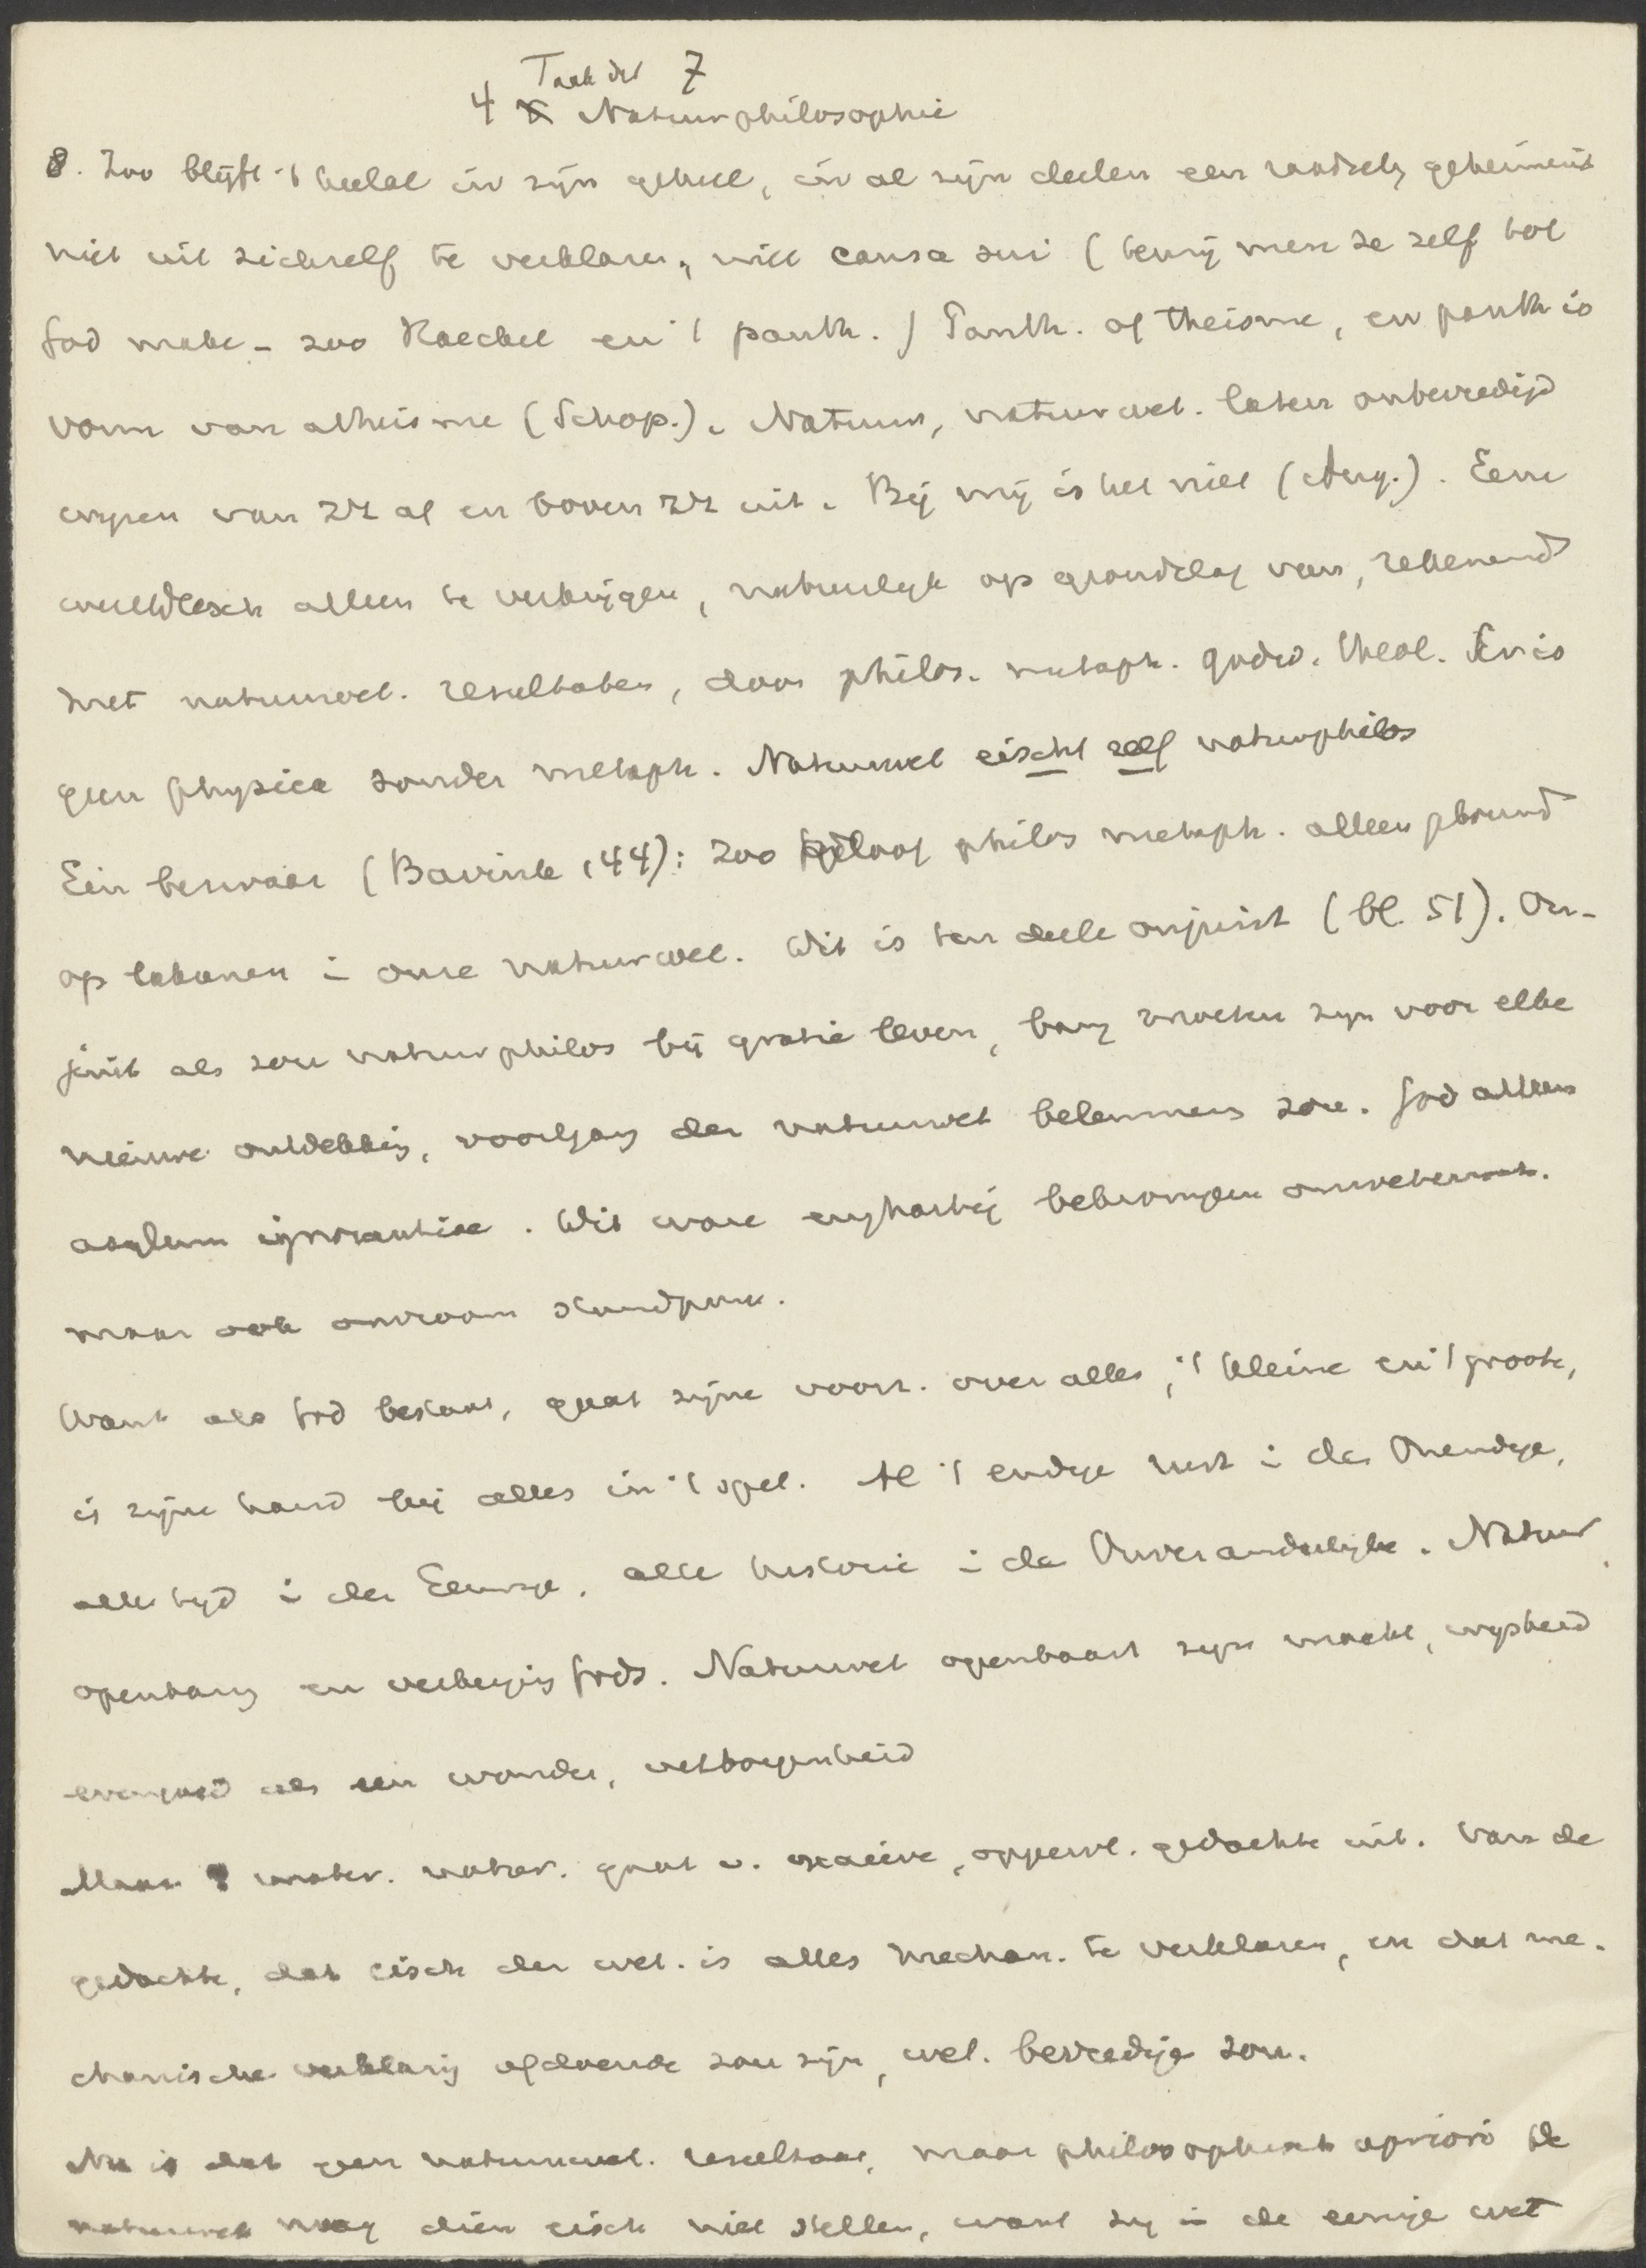 Taak der 7
4 Natuurphilosophie
8. Zoo blijft 't heelal in zijn geheel, in al zijn deelen een raadsel, geheimenis
niet uit zichzelf te verklaren, niet causa sui (tenzij men ze zelf tot
God make - zoo Haeckel en 't panth.) Panth. of theisme, en panth is
vorm van atheisme (Schop.). Natuur, natuurwet. laten onbevredigd
wijzen van zich af en boven zich uit. Bij mij is het niet (Aug.). Eene
wereldbesch alleen te verkrijgen, natuurlijk op grondslag van, rekenend
met natuurwet. resultaten, door philos. metaph. godsd. theol. Er is
geen physica zonder metaph. Natuurwet eischt zelf natuurphilos
Eén bezwaar (Bavink 144): zoo geloof philos metaph. alleen gbouwd
op lakunen i onze natuurwet. Dit is ten deele onjuist (bl. 51). On-
juist als zou natuurphilos bij gratie leven, bang moeten zijn voor elke
nieuwe ontdekking, voortgang der natuurwet belemmeren zou. God alleen
asylum ignorantiae. Dit ware enghartig bekrompen onwetensch.
maar ook onvroom standpunt.
Want als God bestaat, gaat zijne voorz. over alles, 't kleine en 't groote,
is zijne hand bij alles in 't spel. Al 't eindige rust i den Oneindige,
alle tijd i den Eeuwige, alle historie i de Onveranderlijke. Natuur
openbaring en verberging Gods. Natuurwet openbaart zijn macht, wijsheid
evengoed als een wonder, verborgenheid
Maar mater. natur. gaat v. naieve, oppervl. gedachte uit. Van de
gedachte, dat eisch der wet. is alles mechan. te verklaren, en dat me-
chanische verklaring afdoende zou zijn, wet. bevredige zou.
Nu is dat geen natuurwet. resultaat, maar philosophisch apriori de
natuurwet mag dien eisch niet stellen, want zij i de eenige wet